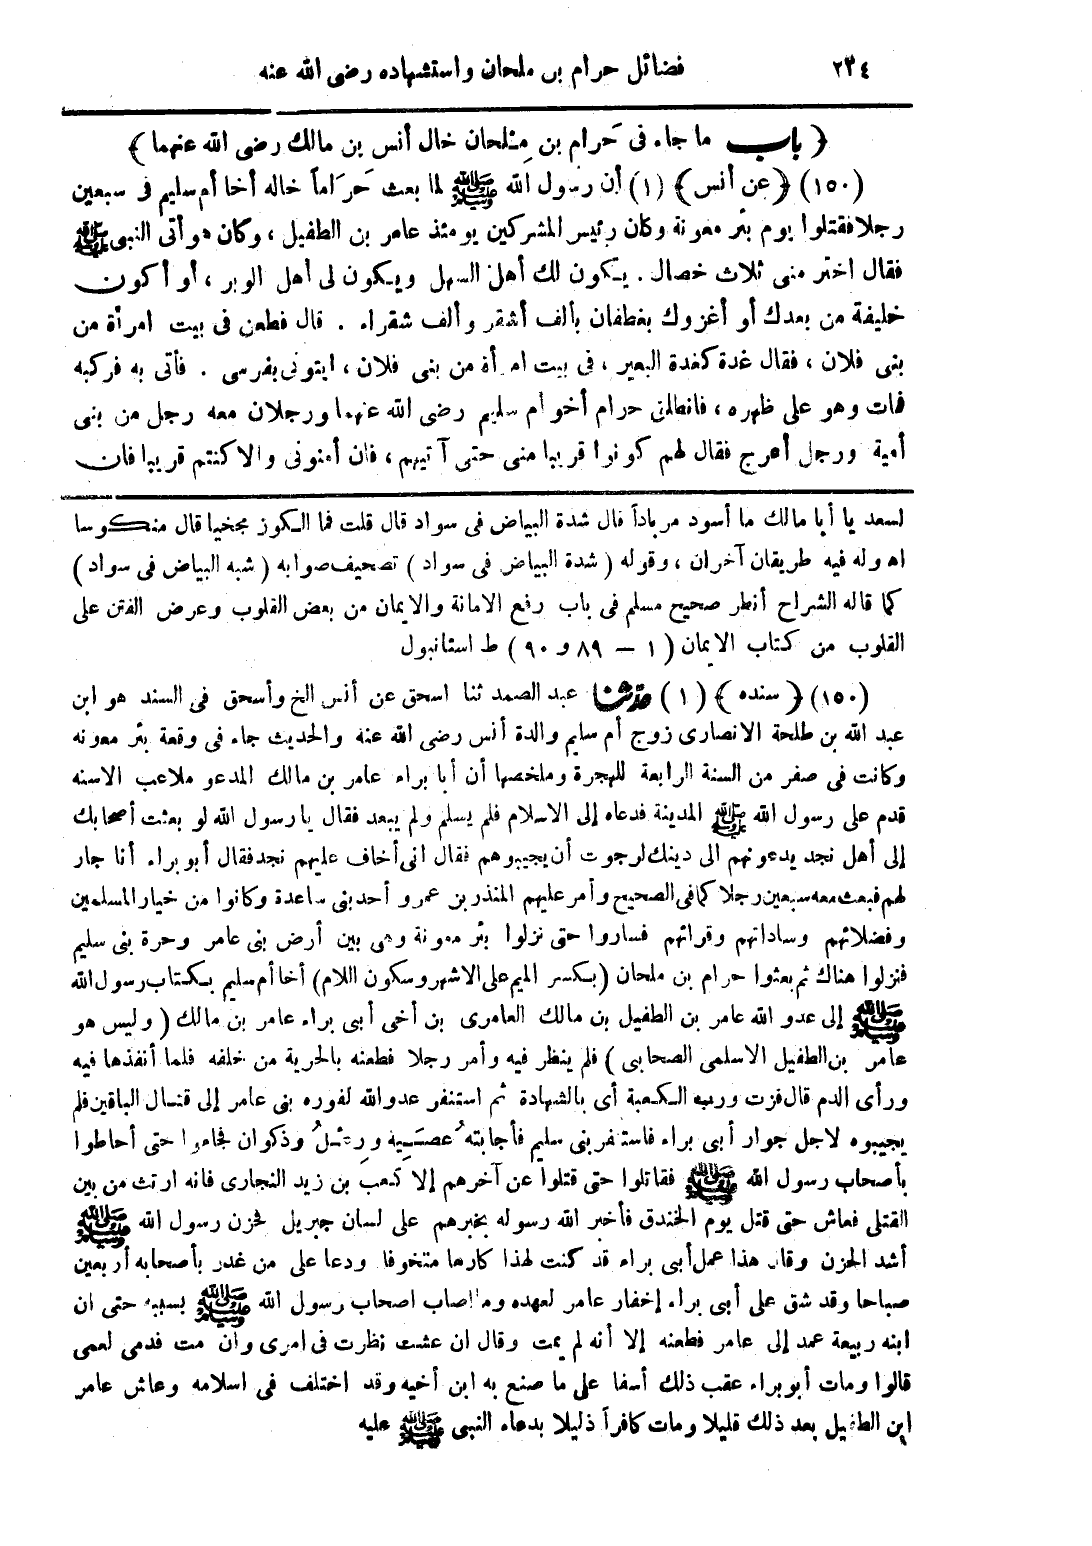 ٢٣٤ فضائل حرام بن ملحان واستشهاده رضى الله عنه
﴿ باب ما جاء فى حَرام بن مِلحان خال أنس بن مالك رضى الله عنهما ﴾
(١٥٠) ﴿ عن أنس ﴾ (١) أن رسول الله ﷺ لما بعث حَرَاماً خاله أخا أم سليم فى سبعين
رجلا فقتلوا يوم بئر معونة وكان رئيس المشركين يومئذ عامر بن الطفيل ، وكان هو أتى النبى ﷺ
فقال اختر منى ثلاث خصال . يكون لك أهل السهل ويكون لى أهل الوبر ، أو أكون
خليفة من بعدك أو أغزوك بغطفان بألف أشقر وألف شقراء . قال فطعن فى بيت امرأة من
بنى فلان ، فقال غدة كغدة البعير ، فى بيت امرأة من بنى فلان ، ايتونى بفرسى . فأتى به فركبه
فمات وهو على ظهره ، فانطلق حرام أخو أم سليم رضى الله عنهما ورجلان معه رجل من بنى
أمية ورجل أعرج فقال لهم كونوا قريبا منى حتى آتيهم ، فان أمنونى والا كنتم قريبا فان
لسعد يا أبا مالك ما أسود مرباداً قال شدة البياض فى سواد قال قلت فما الكوز مجخيا قال منكوسا
اه وله فيه طريقان آخران ، وقوله ( شدة البياض فى سواد ) تصحيف صوابه ( شبه البياض فى سواد )
كما قاله الشراح أنظر صحيح مسلم فى باب رفع الامانة والايمان من بعض القلوب وعرض الفتن على
القلوب من كتاب الايمان ( ١ – ٨٩ و ٩٠ ) ط استانبول
(١٥٠) ﴿ سنده ﴾ (١) حدثنا عبد الصمد ثنا اسحق عن أنس الخ وأسحق فى السند هو ابن
عبد الله بن طلحة الانصارى زوج أم سليم والدة أنس رضى الله عنه والحديث جاء فى وقعة بئر معونه
وكانت فى صفر من السنة الرابعة للهجرة وملخصها أن أبا براء عامر بن مالك المدعو ملاعب الاسنه
قدم على رسول الله ﷺ المدينة فدعاه إلى الاسلام فلم يسلم ولم يبعد فقال يا رسول الله لو بعثت أصحابك
إلى أهل نجد يدعونهم الى دينك لرجوت أن يجيبوهم فقال انى أخاف عليهم نجد فقال أبو براء أنا جار
لهم فبعث معه سبعين رجلا كما فى الصحيح وأمر عليهم المنذر بن عمرو أحد بنى ساعدة وكانوا من خيار المسلمين
وفضلائهم وساداتهم وقرائهم فساروا حتى نزلوا بئر معونة وهى بين أرض بنى عامر وحرة بنى سليم
فنزلوا هناك ثم بعثوا حرام بن ملحان (بكسر الميم على الاشهر وسكون اللام) أخا أم سليم بكتاب رسول الله
ﷺ إلى عدو الله عامر بن الطفيل بن مالك العامرى بن أخى أبى براء عامر بن مالك ( وليس هو
عامر بن الطفيل الاسلمى الصحابى ) فلم ينظر فيه وأمر رجلا فطعنه بالحربة من خلفه فلما أنفذها فيه
ورأى الدم قال فزت ورب الكعبة أى بالشهادة ثم استنفر عدو الله لفوره بنى عامر إلى قتال الباقين فلم
يجيبوه لاجل جوار أبى براء فاستنفر بنى سليم فأجابته عُصَيه ورِعْلُ وذكوان فجاءوا حتى أحاطوا
بأصحاب رسول الله ﷺ فقاتلوا حتى قتلوا عن آخرهم إلا كعب بن زيد النجارى فانه ارتث من بين
القتلى فعاش حتى قتل يوم الخندق فأخبر الله رسوله بخبرهم على لسان جبريل فحزن رسول الله ﷺ
أشد الحزن وقال هذا عمل أبى براء قد كنت لهذا كارها متخوفا ودعا على من غدر بأصحابه أربعين
صباحا وقد شق على أبى براء إخفار عامر لعهده وما أصاب اصحاب رسول الله ﷺ بسببه حتى ان
ابنه ربيعة عمد إلى عامر فطعنه إلا أنه لم يمت وقال ان عشت نظرت فى امرى وان مت فدمى لعمى
قالوا ومات أبو براء عقب ذلك أسفا على ما صنع به ابن أخيه وقد اختلف فى اسلامه وعاش عامر
ابن الطفيل بعد ذلك قليلا ومات كافراً ذليلا بدعاء النبى ﷺ عليه